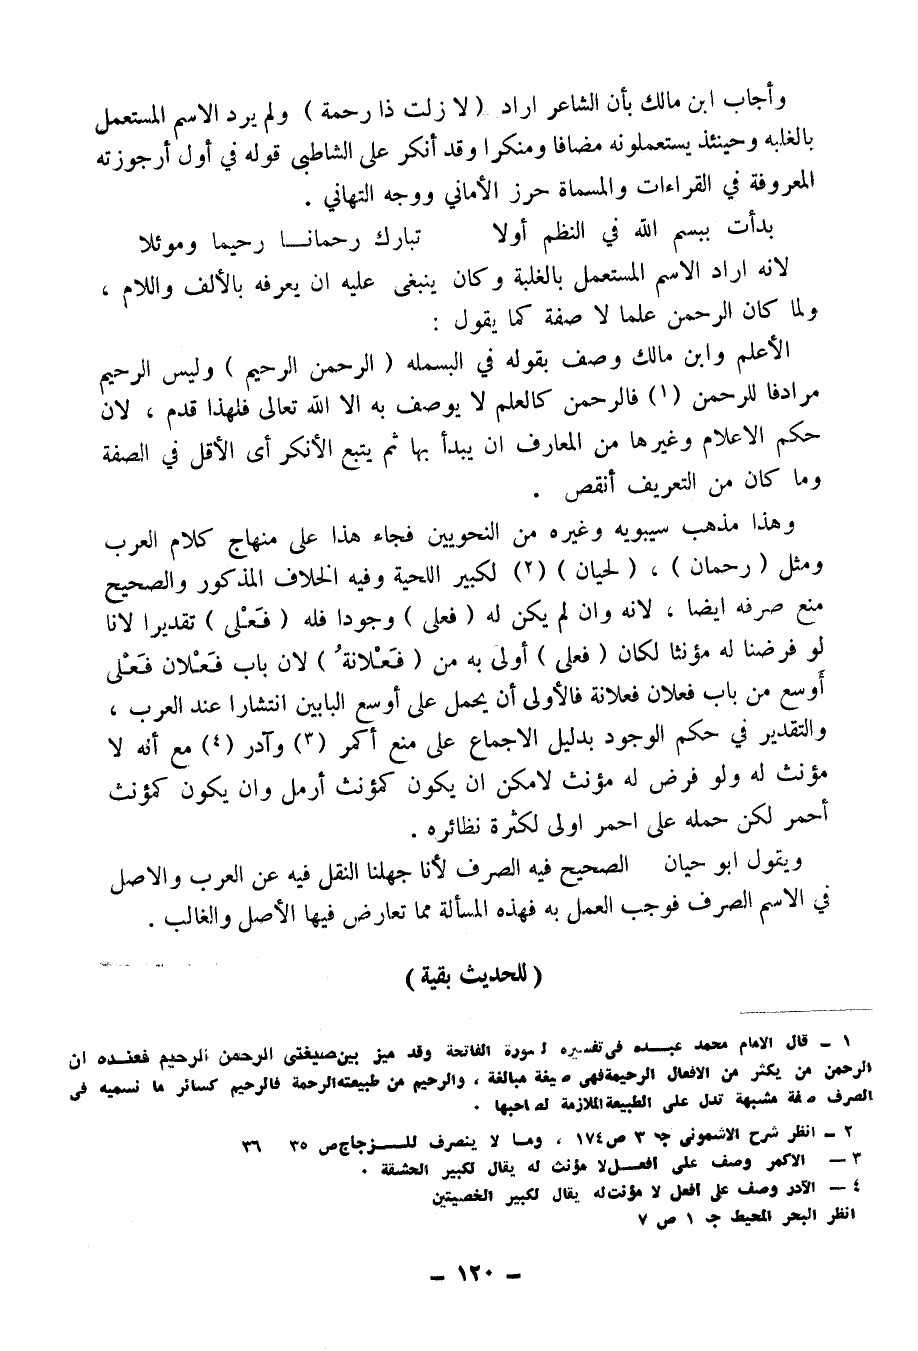 وأجاب ابن مالك بأن الشاعر اراد ( لا زلت ذا رحمة ) ولم يرد الاسم المستعمل
بالغلبه وحينئذ يستعملونه مضافا ومنكرا وقد أنكر على الشاطبى قوله في أول أرجوزته
المعروفة في القراءات والمسماة حرز الأماني ووجه التهاني .
بدأت ببسم الله في النظم أولا تبارك رحمانا رحيما وموئلا
لانه اراد الاسم المستعمل بالغلبة وكان ينبغى عليه ان يعرفه بالألف واللام ،
ولما كان الرحمن علما لا صفة كما يقول :
الأعلم وابن مالك وصف بقوله في البسمله ( الرحمن الرحيم ) وليس الرحيم
مرادفا للرحمن (١) فالرحمن كالعلم لا يوصف به الا الله تعالى فلهذا قدم ، لان
حكم الاعلام وغيرها من المعارف ان يبدأ بها ثم يتبع الأنكر أى الأقل في الصفة
وما كان من التعريف أنقص .
وهذا مذهب سيبويه وغيره من النحويين فجاء هذا على منهاج كلام العرب
ومثل ( رحمان ) ، ( لحيان ) (٢) لكبير اللحية وفيه الخلاف المذكور والصحيح
منع صرفه ايضا ، لانه وان لم يكن له ( فعلى ) وجودا فله ( فَعْلى ) تقديرا لانا
لو فرضنا له مؤنثا لكان ( فعلى ) أولى به من ( فَعْلانة ُ ) لان باب فَعْلان فَعْلى
أوسع من باب فعلان فعلانة فالأولى أن يحمل على أوسع البابين انتشارا عند العرب ،
والتقدير في حكم الوجود بدليل الاجماع على منع أكمر (٣) وآدر (٤) مع أنه لا
مؤنث له ولو فرض له مؤنث لامكن ان يكون كمؤنث أرمل وان يكون كمؤنث
أحمر لكن حمله على احمر اولى لكثرة نظائره .
ويقول ابو حيان الصحيح فيه الصرف لأنا جهلنا النقل فيه عن العرب والاصل
في الاسم الصرف فوجب العمل به فهذه المسألة مما تعارض فيها الأصل والغالب .
( للحديث بقية )
١ – قال الامام محمد عبده فى تفسيره لسورة الفاتحة وقد ميز بين صيغتى الرحمن الرحيم فعنده ان
الرحمن من يكثر من الافعال الرحيمة فهى صيغة مبالغة ، والرحيم من طبيعته الرحمة فالرحيم كسائر ما نسميه فى
الصرف صفة مشبهة تدل على الطبيعة الملازمة لصاحبها .
٢ – انظر شرح الاشمونى جـ ٣ ص ١٧٤ ، وما لا ينصرف للزجاج ص ٣٥ ٣٦
٣ – الاكمر وصف على افعل لا مؤنث له يقال لكبير الحشفة .
٤ – الآدر وصف على افعل لا مؤنث له يقال لكبير الخصيتين
انظر البحر المحيط جـ ١ ص ٧
– ١٢٠ –